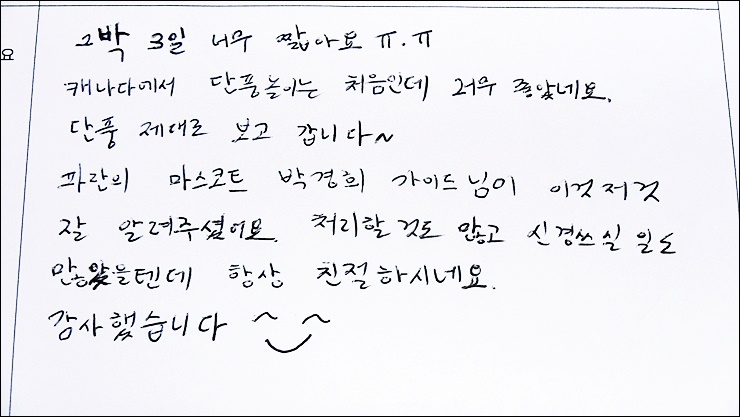 2박 3일 너무 짧아요 ㅠ.ㅠ
요
캐나다에서 단풍놀이는 처음인데 너무 좋았네요.
단풍 제대로 보고 갑니다~
파란의 마스코트 박경희 가이드님이 이것저것
잘 알려주셨어요. 처리할것도 많고 신경쓰실 일도
많았을텐데 항상 친절하시네요.
감사했습니다 ^‿^